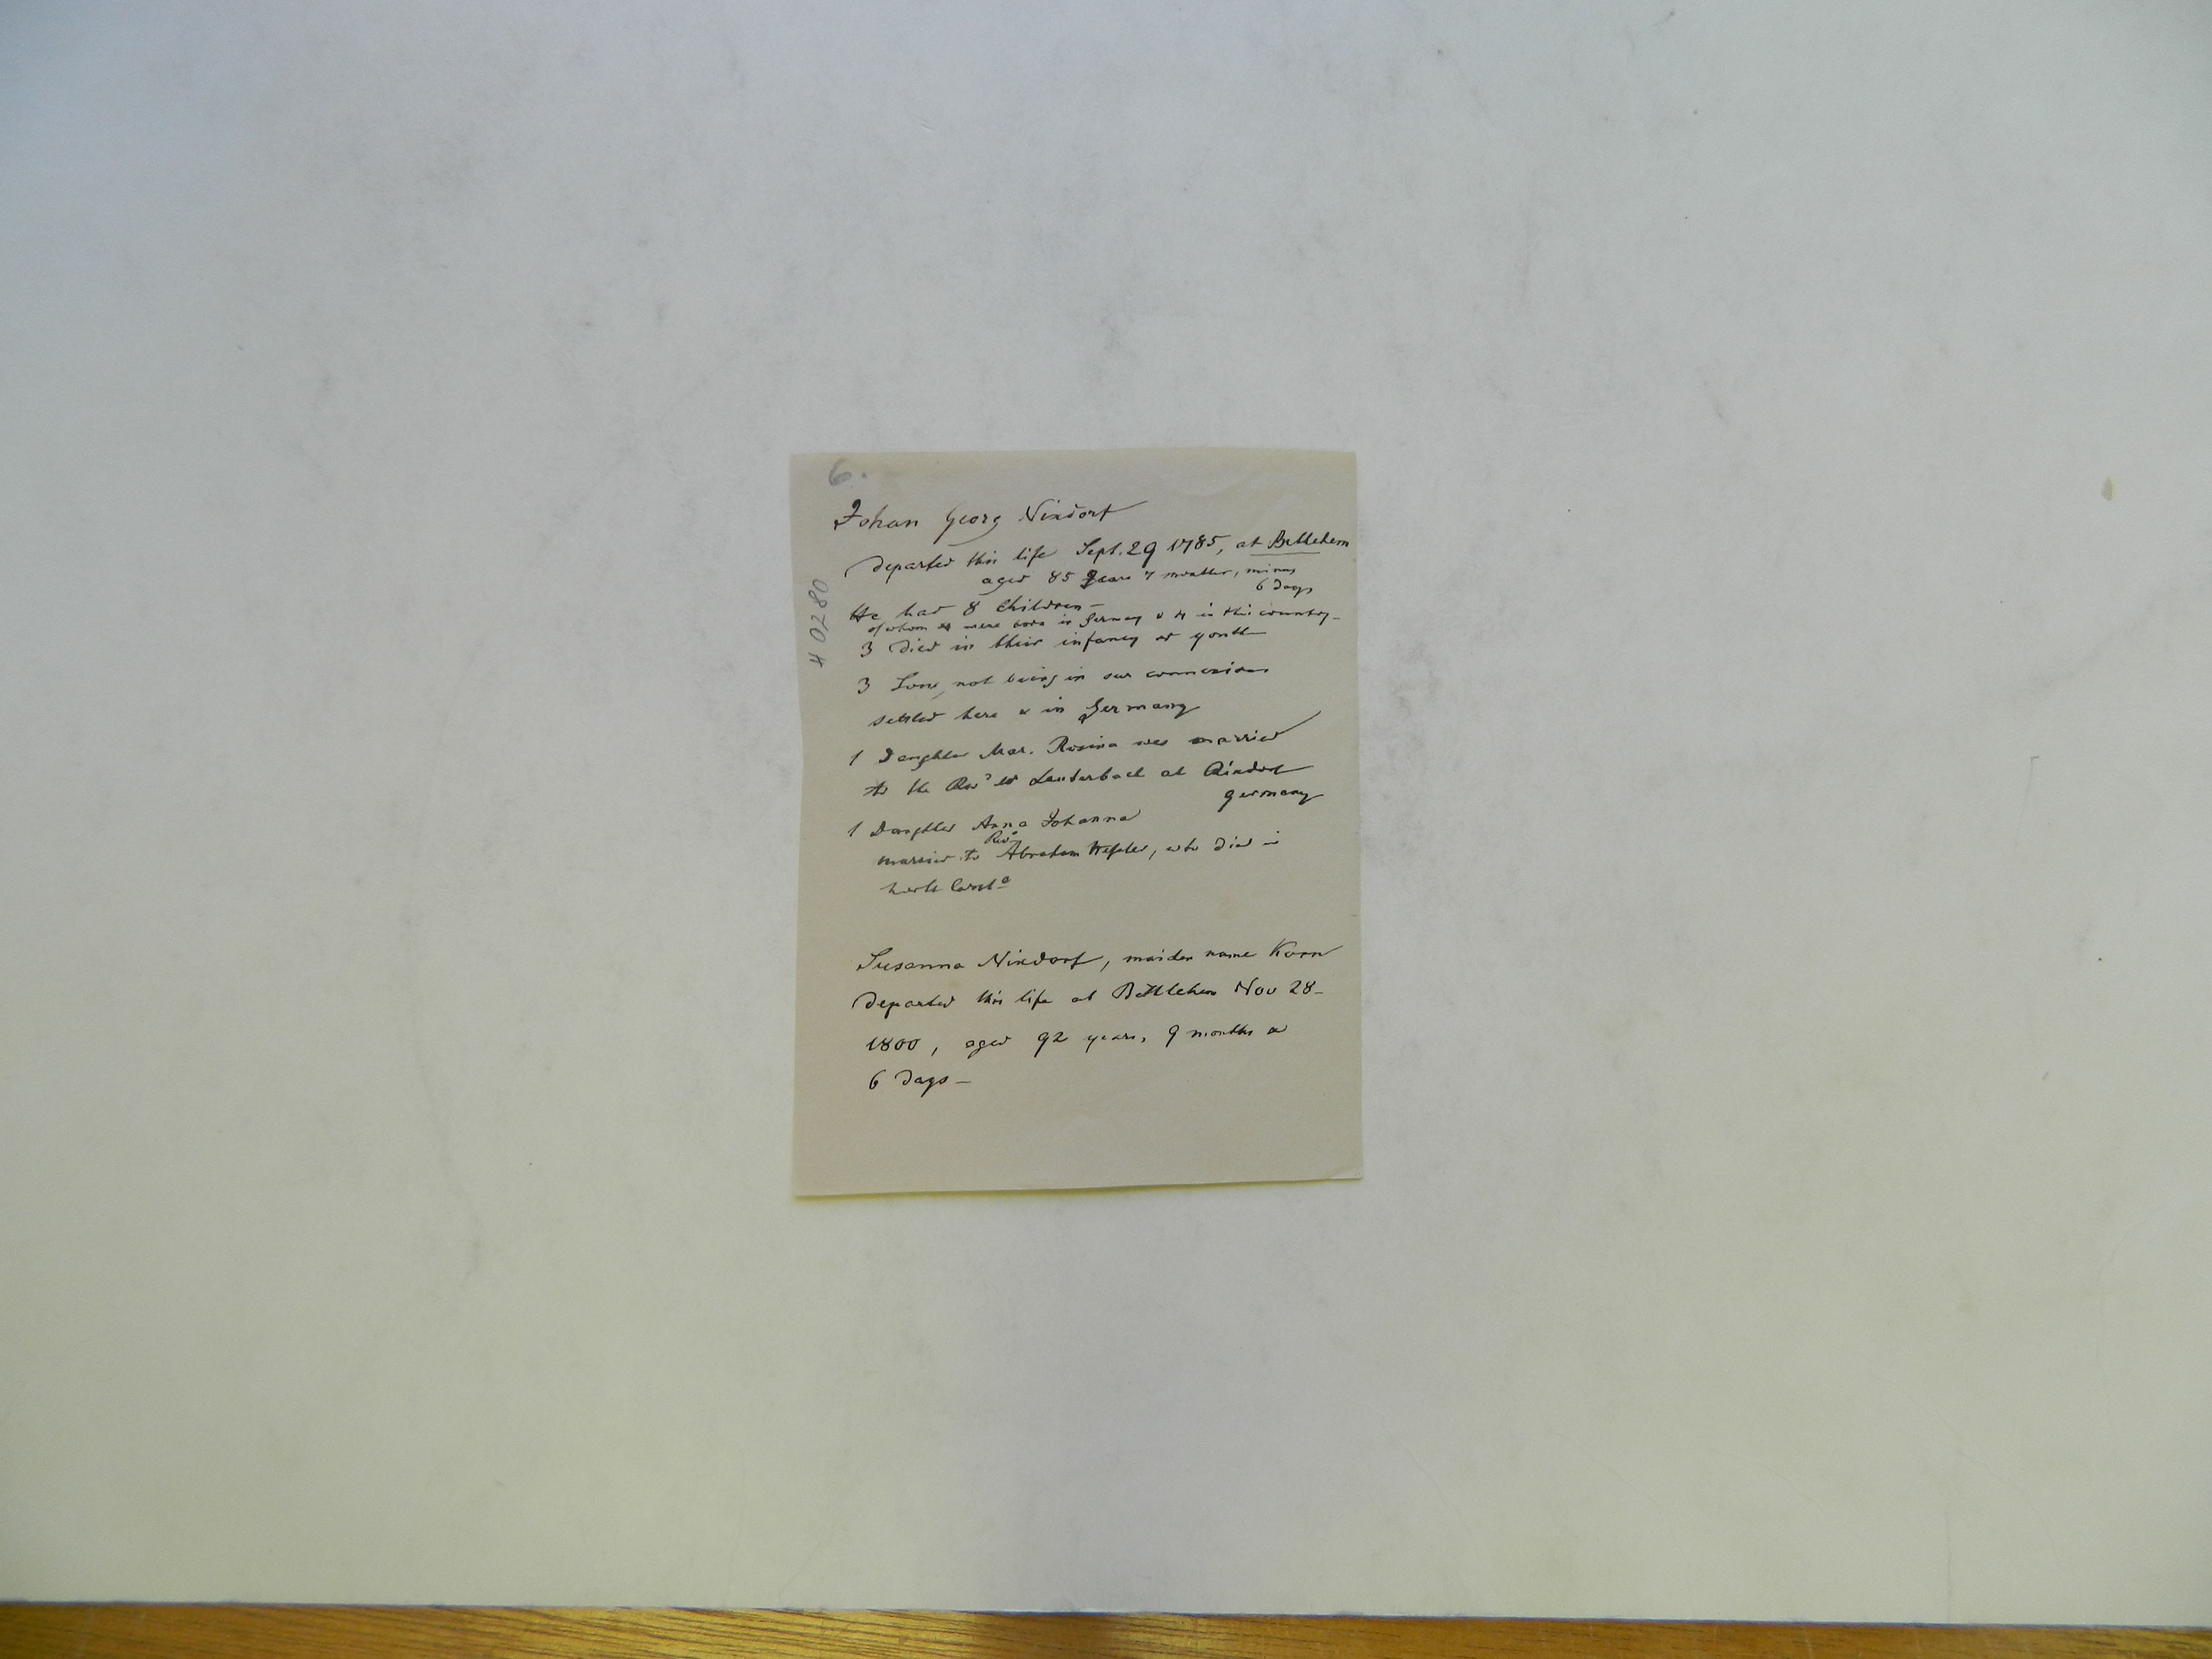 6.
Johan Georg Nixdorf
departed this life Sept. 29 1785, at Bethlehem
aged 85 years 7 months, minus
6 days
He had 8 children -
of whom 4 were born in Germany & 4 in this country -
3 died in their infancy or youth
3 Sons, not being in our connexion
settled here & in Germany
1 Daughter Mar. Rosina was married
to the Revd Lauterbach at
Germany
1 Daughter Anna Johanna
married to Revd Abraham, who died in
North Carola
Susanna Nixdorf, maiden name Korn
departed this life at Bethlehem Nov 28 -
1800, aged 92 years, 9 months &
6 days -
40280